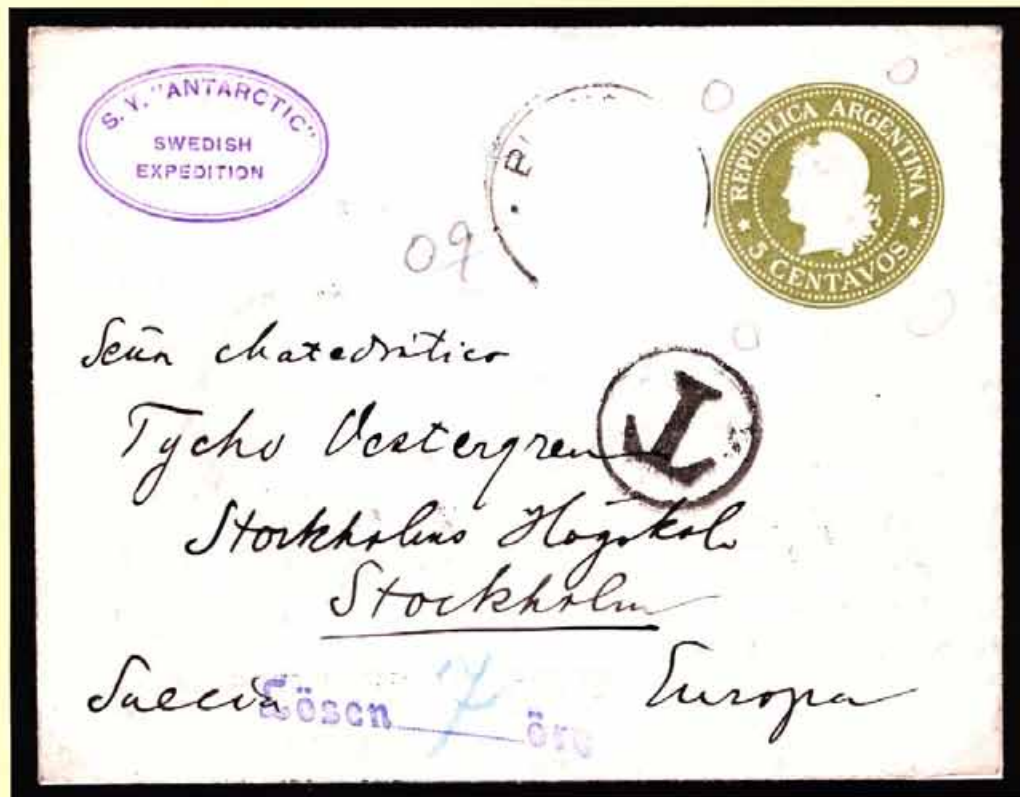 S. Y. "ANTARCTIC"
SWEDISH
EXPEDITION
REPUBLICA ARGENTINA
5 CENTAVOS
09
T
Señr chatedrático
Tycho Vestergren
Stockholms Högskola
Stockholm
Suecia Europa
Lösen 7 öre